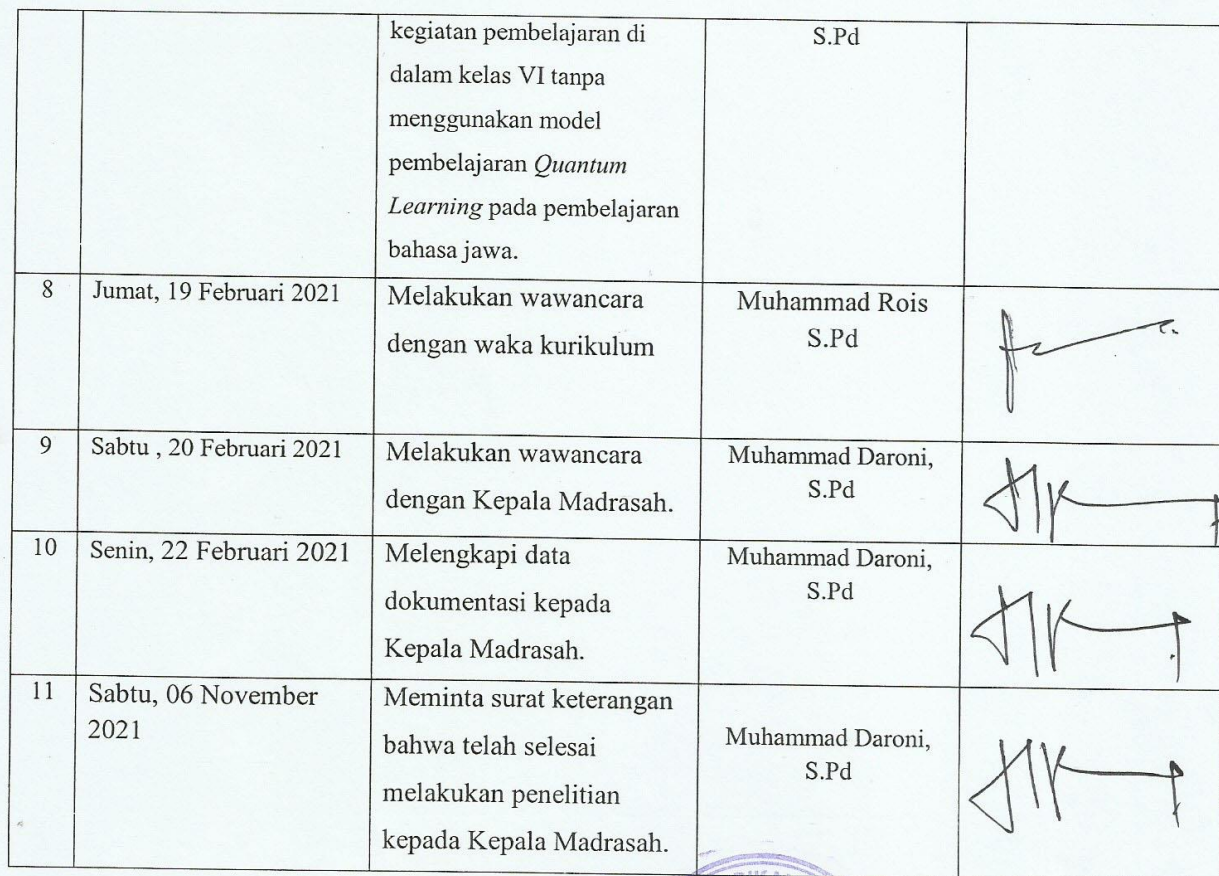 kegiatan pembelajaran di
dalam kelas VI tanpa
menggunakan model
pembelajaran Quantum
Learning pada pembelajaran
bahasa jawa.
S.Pd
8
Jumat, 19 Februari 2021
Melakukan wawancara
dengan waka kurikulum
Muhammad Rois
S.Pd
9
Sabtu , 20 Februari 2021
Melakukan wawancara
dengan Kepala Madrasah.
Muhammad Daroni,
S.Pd
10
Senin, 22 Februari 2021
Melengkapi data
dokumentasi kepada
Kepala Madrasah.
Muhammad Daroni,
S.Pd
11
Sabtu, 06 November
2021
Meminta surat keterangan
bahwa telah selesai
melakukan penelitian
kepada Kepala Madrasah.
Muhammad Daroni,
S.Pd